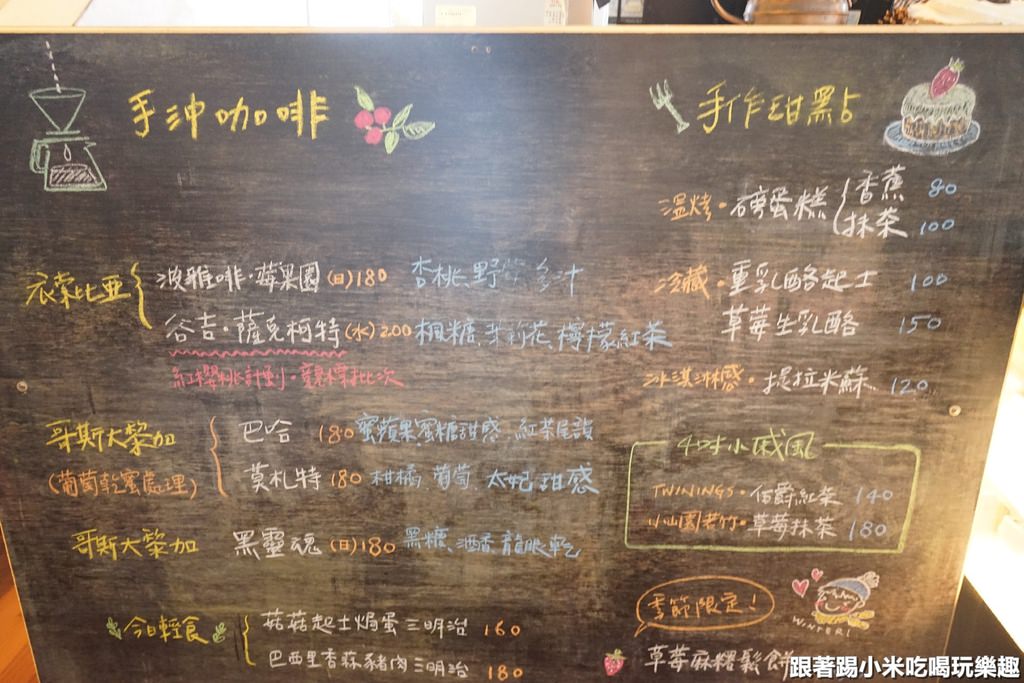 手沖咖啡
衣索比亞
波雅啡·莓果園(日)180 杏桃、野莓多汁
谷吉·薩克柯特(水)200 楓糖、茉莉花、檸檬紅茶
紅櫻桃計劃·競標批次
哥斯大黎加
(葡萄乾蜜處理)
巴哈 180 蜜蘋果蜜糖甜感、紅茶尾韻
莫札特 180 柑橘 葡萄、太妃甜感
哥斯大黎加 黑靈魂(日)180 黑糖、酒香、龍眼乾
今日輕食
菇菇起士焗蛋三明治 160
巴西里香蒜豬肉三明治 180
手作甜點
溫烤·磅蛋糕
香蕉 80
抹茶 100
冷藏·重乳酪起士 100
草莓生乳酪 150
冰淇淋感·提拉米蘇 120
4吋小戚風
TWININGS·伯爵紅茶 140
小山園若竹·草莓抹茶 180
季節限定!
WINTER!
草莓麻糬鬆餅
跟著踢小米吃喝玩樂趣